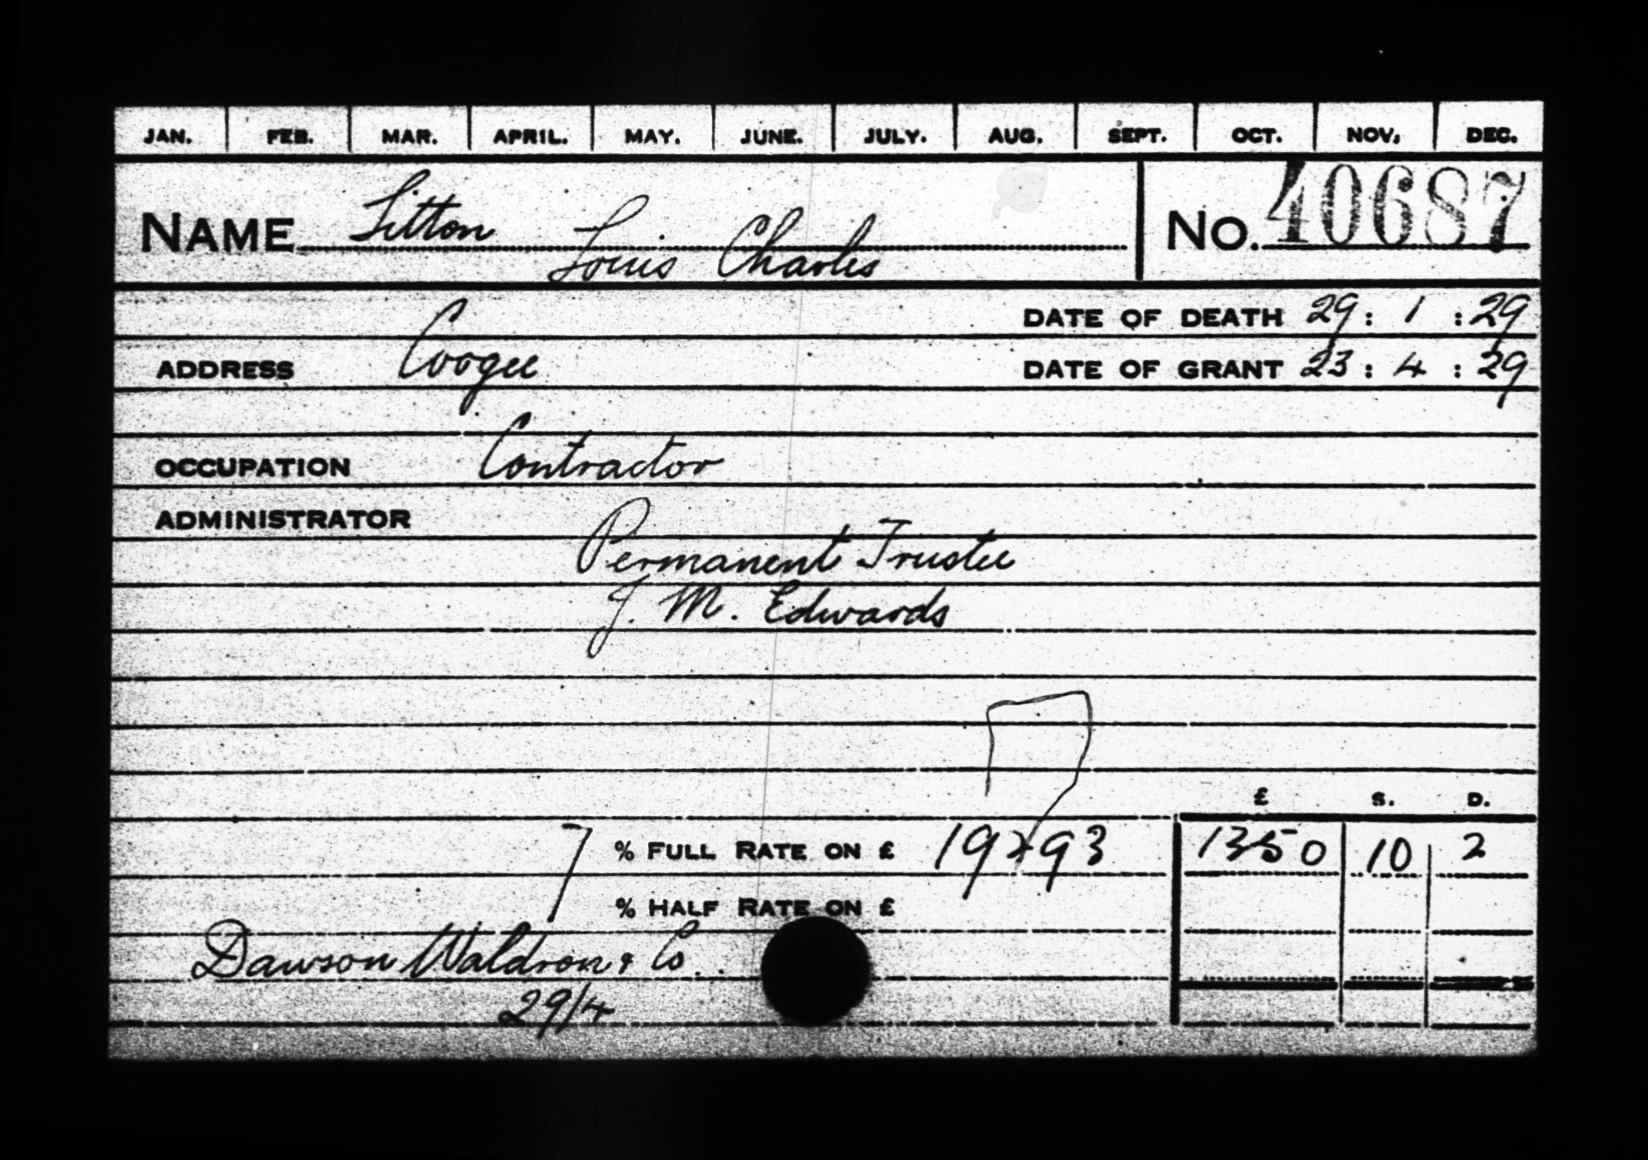 JAN. FEB. MAR. APRIL. MAY. JUNE. JULY. AUG. SEPT. OCT. NOV. DEC.
NAME Litton Louis Charles No. 40687
DATE OF DEATH 29 : 1 : 29
ADDRESS Coogee DATE OF GRANT 23 : 4 : 29
OCCUPATION Contractor
ADMINISTRATOR
Permanent Trustee
J. M. Edwards
£ S. D.
7 % FULL RATE ON £ 19293 1350 10 2
% HALF RATE ON £
Dawson Waldron & Co.
29/4